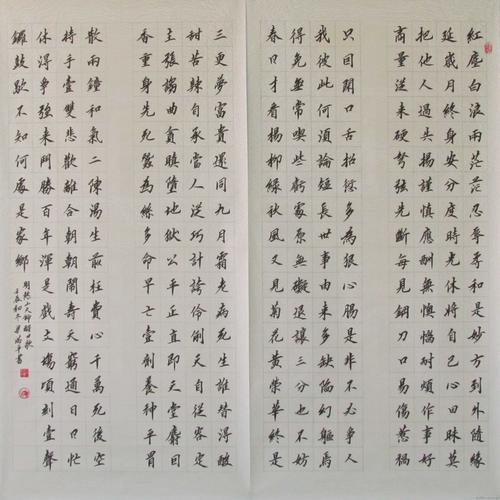 紅塵白浪兩茫茫忍辱柔和是妙方到處隨緣
延歲月終身安分度時光休將自己心田昧莫
把他人過失揚謹慎應酬無懊惱耐煩作事好
商量從來硬弩弦先斷每見鋼刀口易傷惹禍
只因閑口舌招愆多為狠心腸是非不必爭人
我彼此何須論短長世事由來多缺陷幻軀焉
得免無常喫些虧處原無礙退讓三分也不妨
春日才看楊柳綠秋風又見菊花黃榮華終是
三更夢富貴還同九月霜老病死生誰替得酸
甜苦辣自承當人從巧計誇伶俐天自從容定
主張諂曲貪瞋墮地獄公平正直即天堂麝因
香重身先死蠶為絲多命早亡壹劑養神平胃
散兩鐘和氣二陳湯生前枉費心千萬死後空
持手壹雙悲歡離合朝朝鬧壽夭窮通日日忙
休得爭強來鬥勝百年渾是戲文場頃刻壹聲
鑼鼓歇不知何處是家鄉
明憨山大師醒世歌
壬辰初冬書